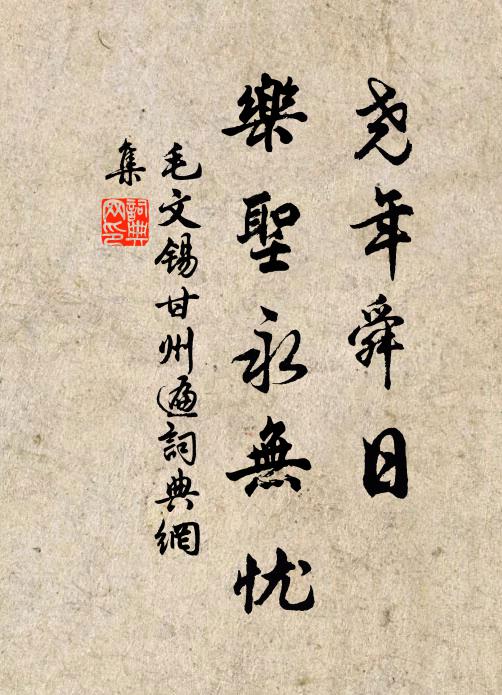 尧年舜日
樂聖永無忧
毛文锡甘州遍詞典網
集
詞典网印